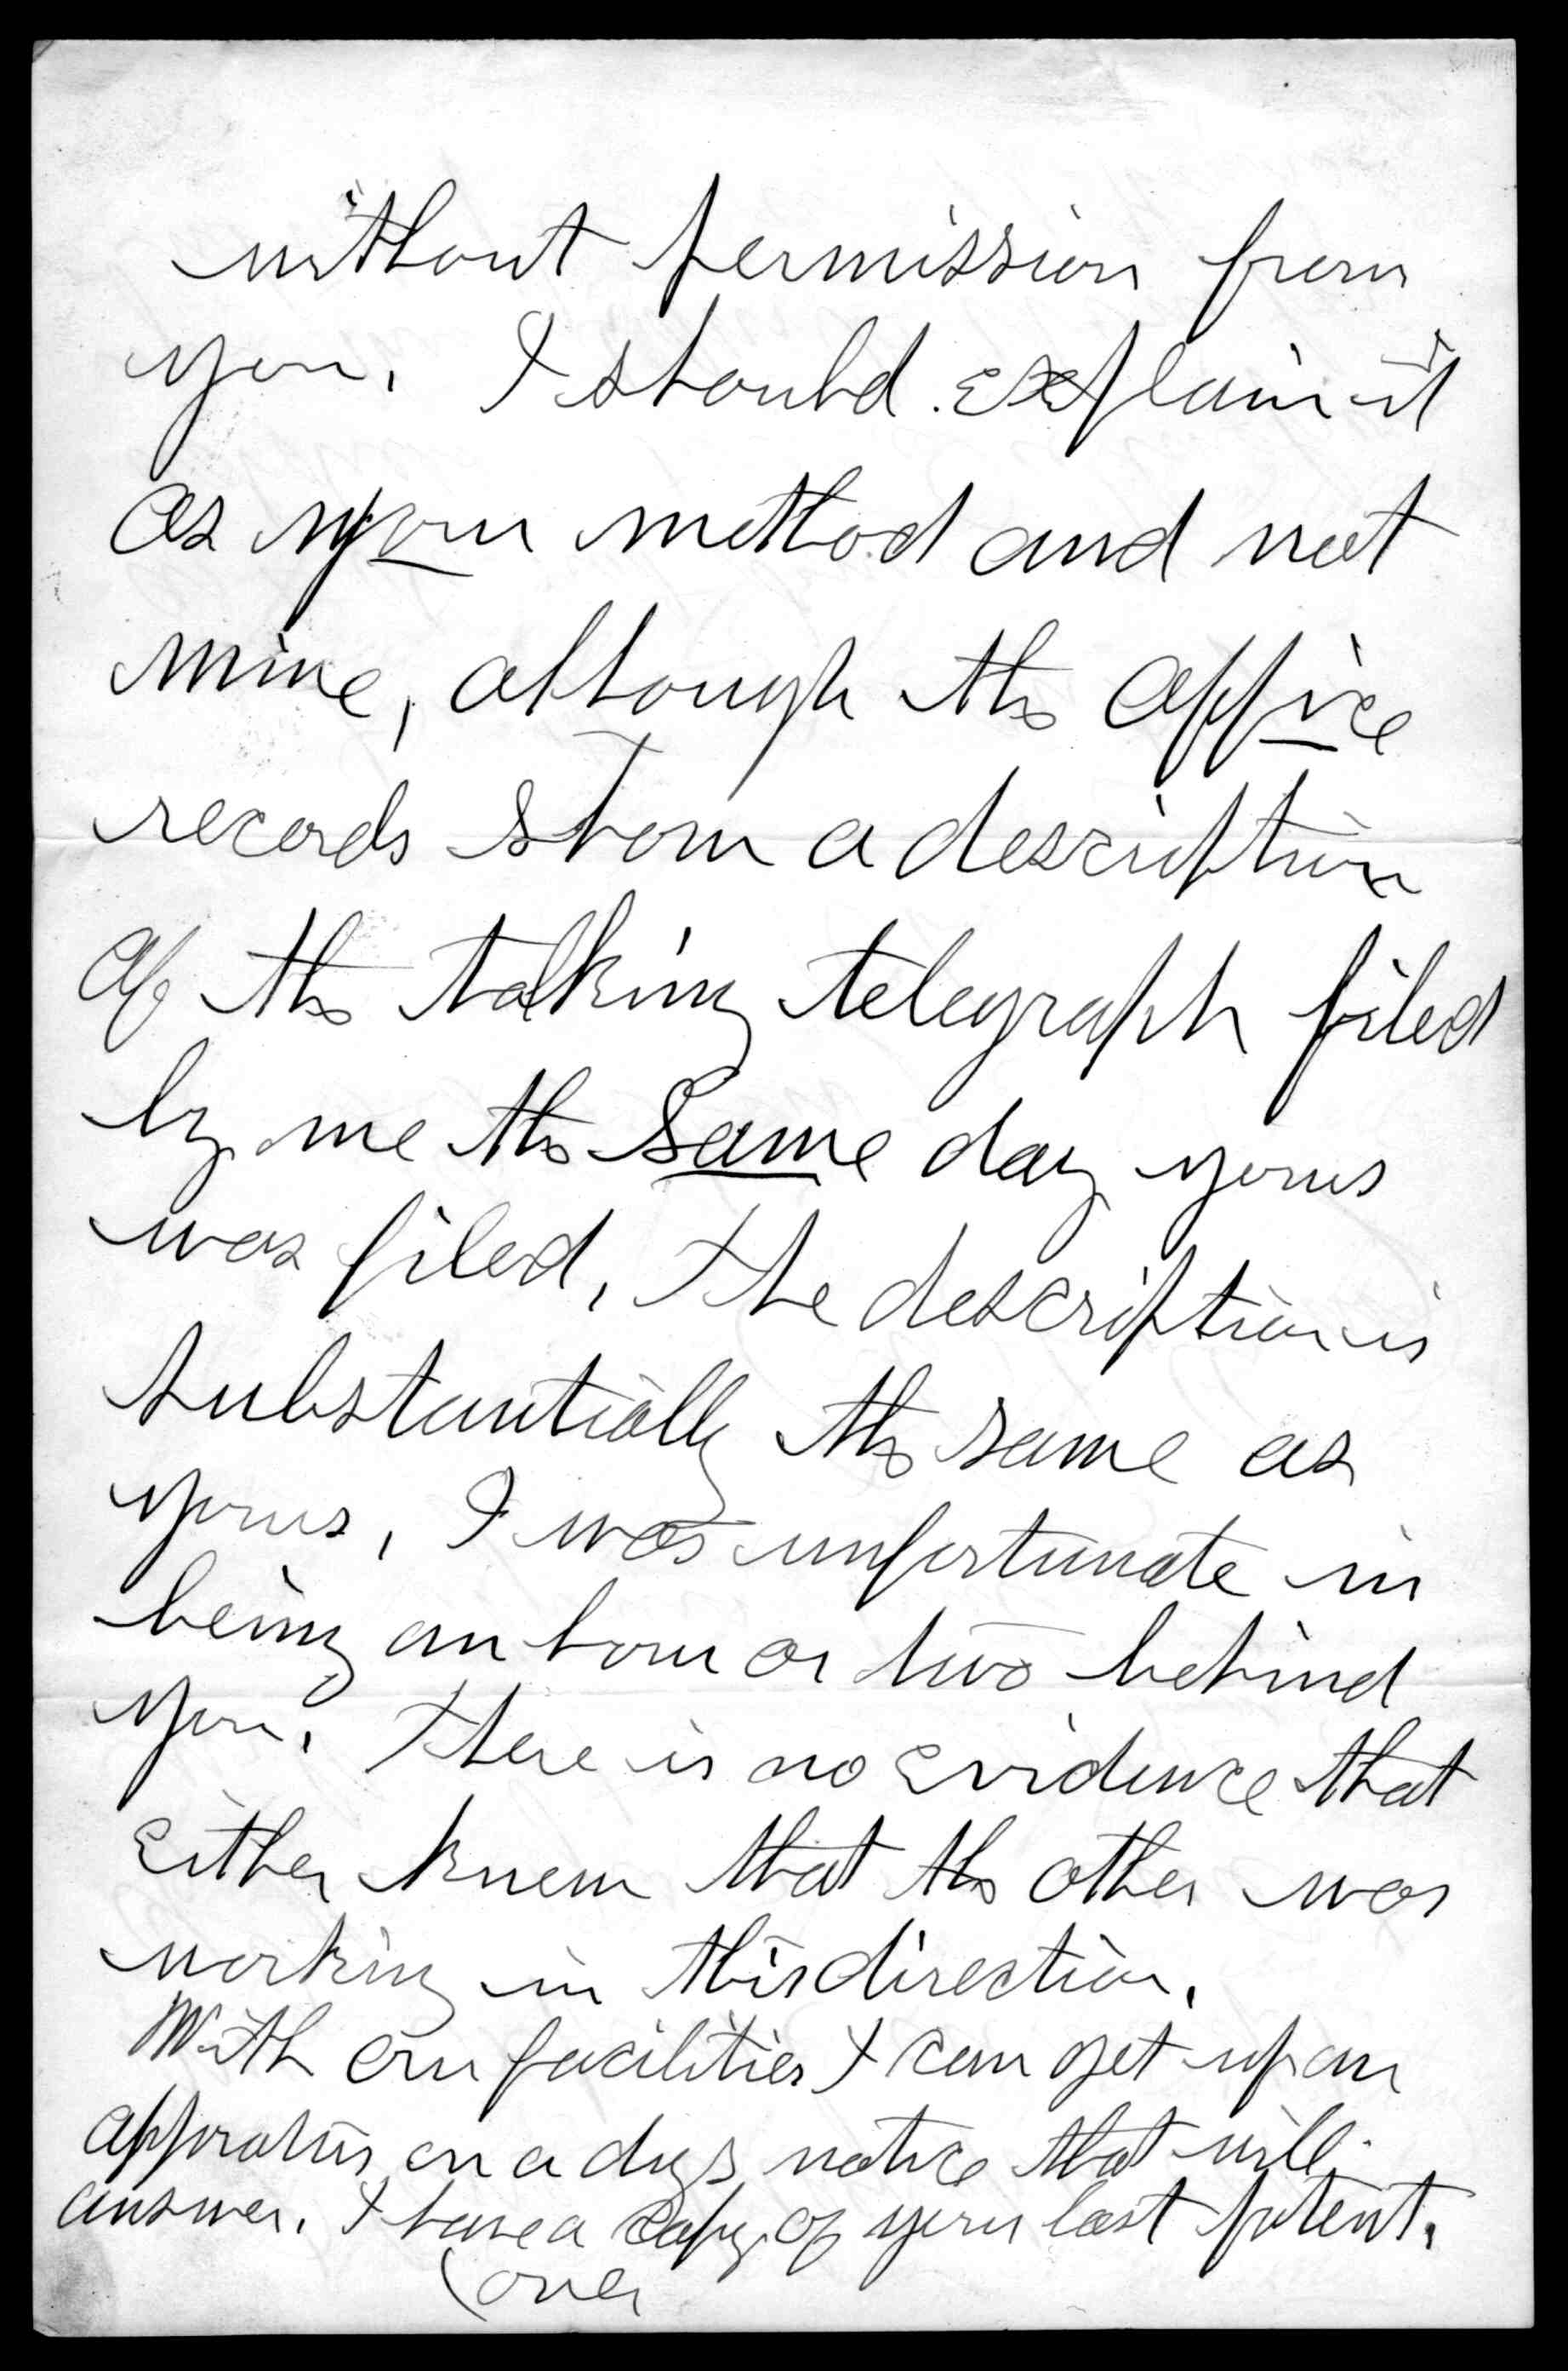 without permission from
you. I should explain it
as your method and not
mine, although the office
records show a description
of the talking telegraph filed
by me the same day yours
was filed. The description is
substantially the same as
yours. I was unfortunate in
being an hour or two behind
you. There is no evidence that
either knew that the other was
working in this direction.
With our facilities I can get up an
apparatus on a days notice that will
answer. I have a copy of your last patent.
(over